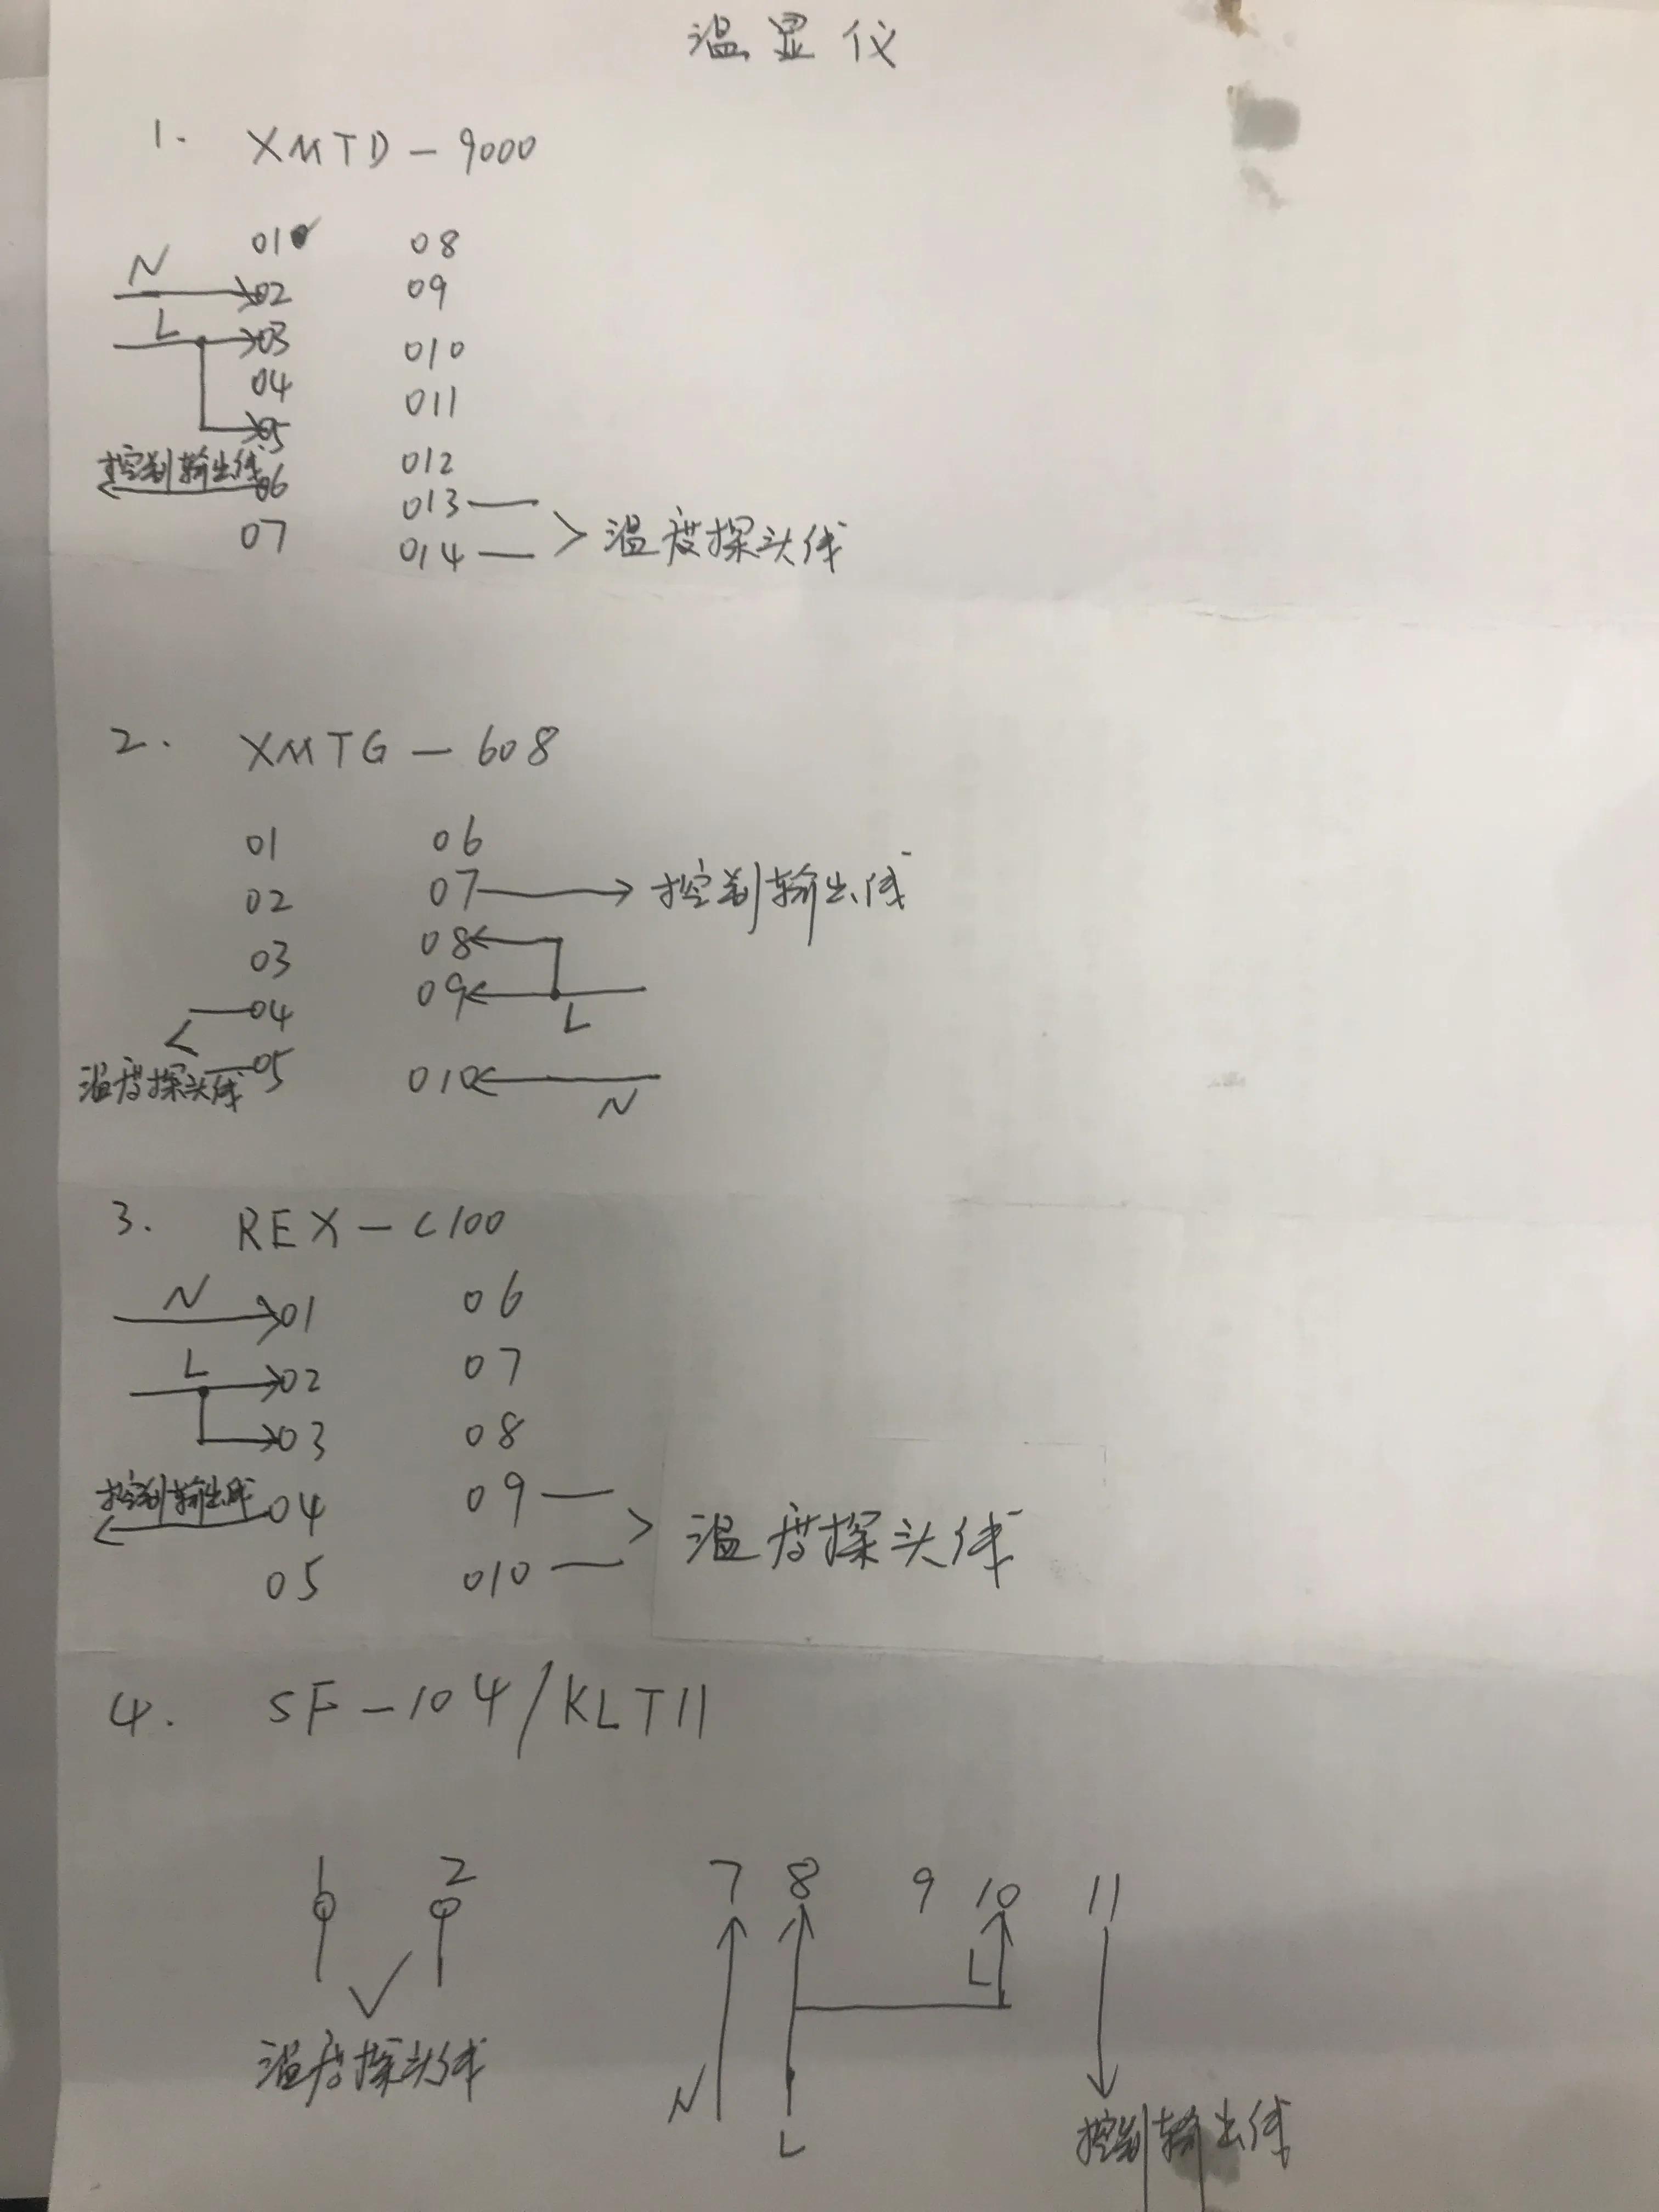 温显仪
1. XMTD-9000
01 08
N
02 09
L
03 010
04 011
05
控制输出线 012
06 013
07 014 温度探头线
2. XMTG-608
01 06
02 07 控制输出线
03 08
04 09
L
温度探头线 05 010
N
3. REX-C100
N
01 06
L
02 07
03 08
控制输出线
04 09
温度探头线
05 010
4. SF-104/KLT11
1 2 7 8 9 10 11
L
温度探头线
N
L
控制输出线